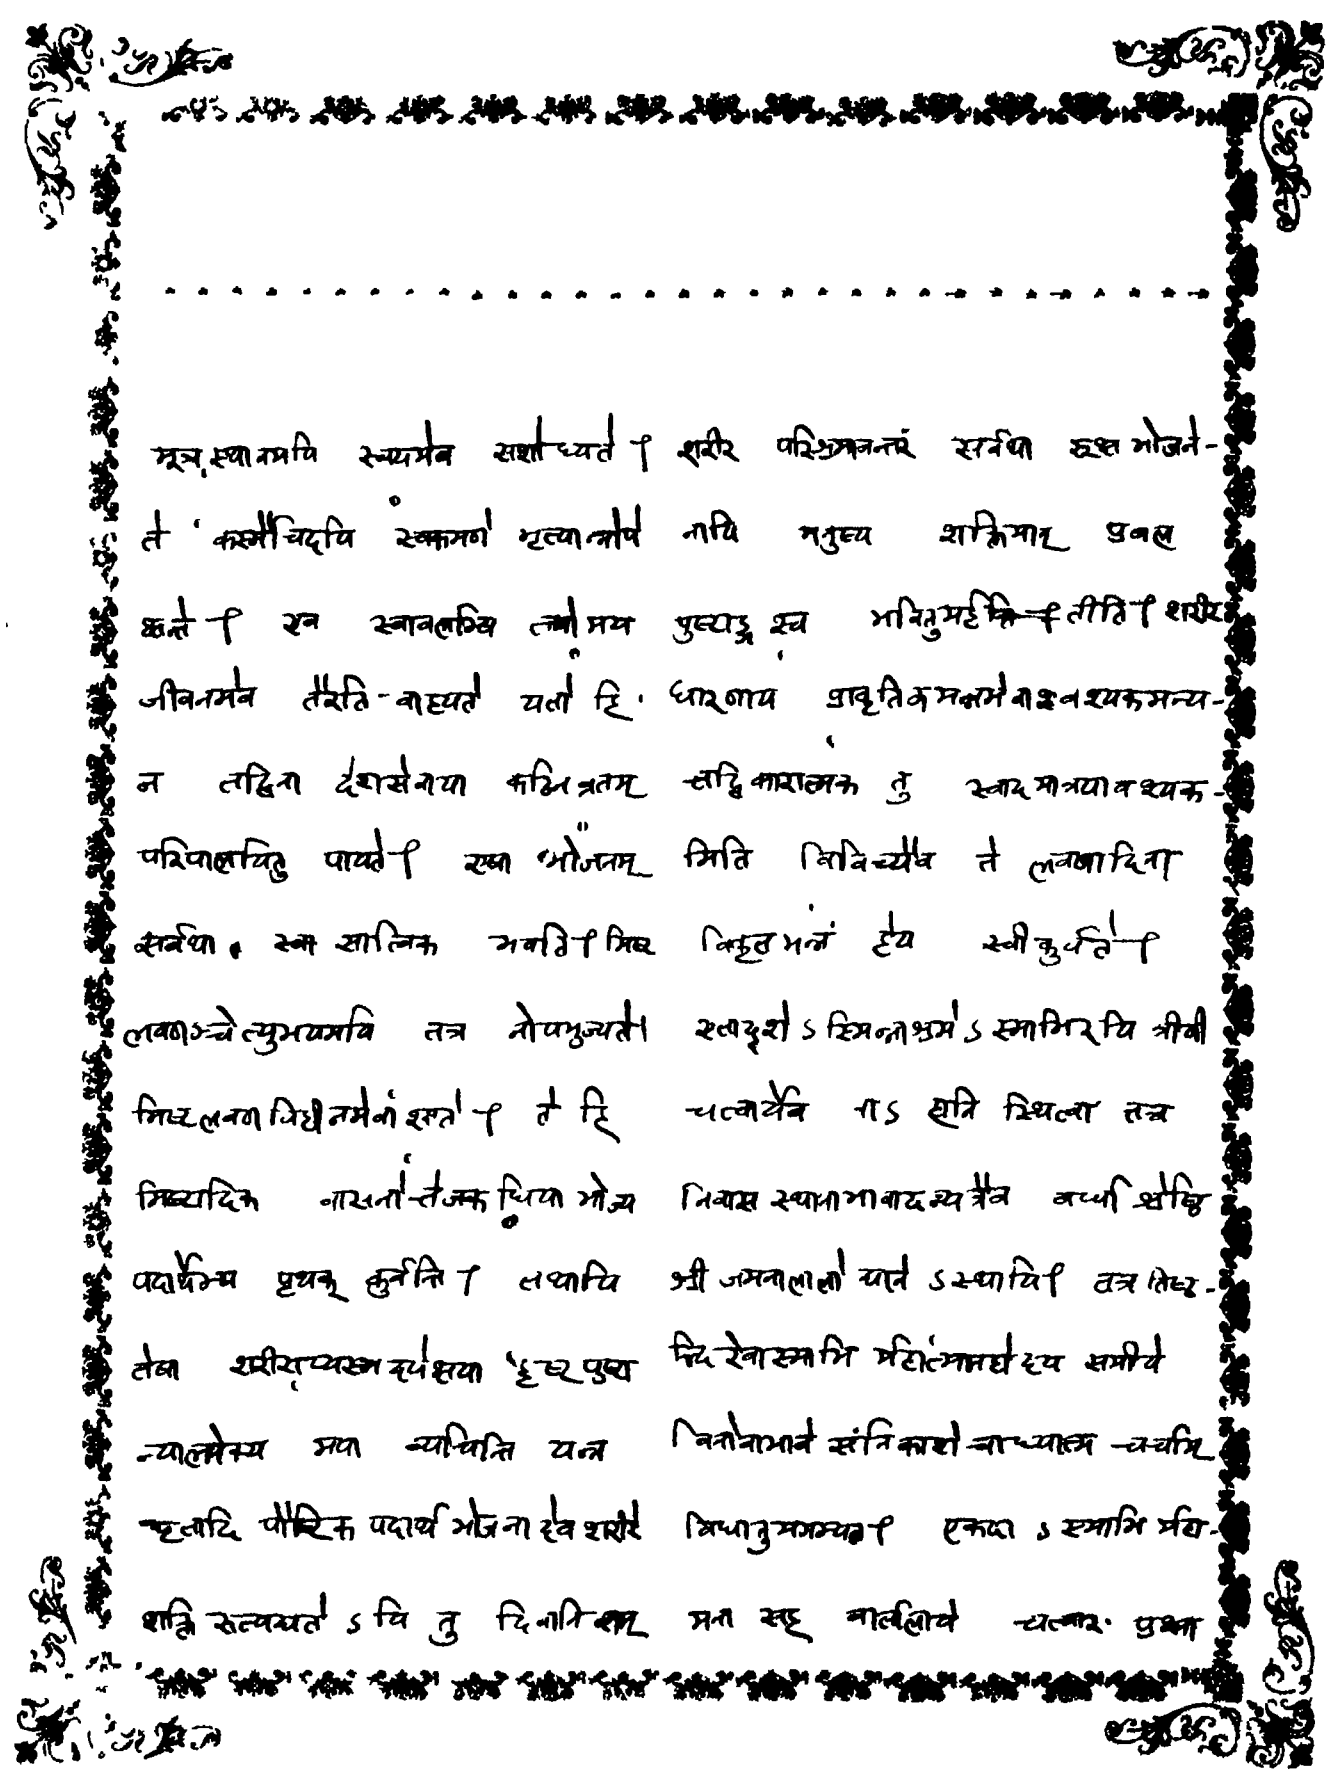 मूत्र स्थानमपि स्वयमेव सशोध्यते । शरीर परिश्रमानन्तरं सर्वथा रूक्ष भोजने-
ते कस्मैचिदपि स्वकमणे भृत्यान्नोपे नापि मनुष्य शक्तिमान् प्रबल
क्षन्ते । एव स्वावलम्बि तपोमय पुष्टाङ्ग श्च भवितुमर्हति । तीति । शरीर
जीवनमेव तैरति-वाह्यते यतो हि धारणाय प्राकृतिकमन्नमेवाऽवश्यकमन्य-
न तद्विना देशसेवाया कठिनव्रतम् त्तद्विकारात्मक तु स्वादमात्रयावश्यक-
परिपालयितु पायते । एषा भोजनम् मिति विविच्यैव ते लवणादिना
सर्वथा स्वा सात्विक भवति । मिष्ट विकृतमन्नं हेय स्वीकुर्वते ।
लवणञ्चेत्युभयमपि तत्र नोपभुज्यते। एतादृशेऽस्मिन्नाश्रमेऽस्माभिरपि त्रीणी
मिष्टलवणविहीनमेवाश्नते । ते हि चत्वार्येव वाऽहानि स्थित्वा तत्र
मिष्टादिक वासनोत्तेजक धिया भोज्य निवासस्थानाभावादन्यत्रैव वर्धा श्रेष्ठि
पदार्थेभ्य पृथक् कुर्वन्ति । तथापि श्री जमनालालोद्यानेऽस्थायि । तत्र तिष्ठ-
तेषा शरीराण्यस्मदपेक्षया हृष्टपुष्टा द्भिरेवास्माभि र्महात्मामहोदय समीपे
न्यालोक्य मया व्यचिन्ति यन्न विनोवाभावे सनिकाशे चाध्यात्म चर्चामि
घृतादि पौष्टिक पदार्थ भोजनादेव शरीरे विधातुमगम्यत । एकदाऽस्माभि र्महा-
शक्ति रुत्पद्यतेऽपि तु दिनानिशम् मना सह वार्तालापे चत्वार प्रश्ना